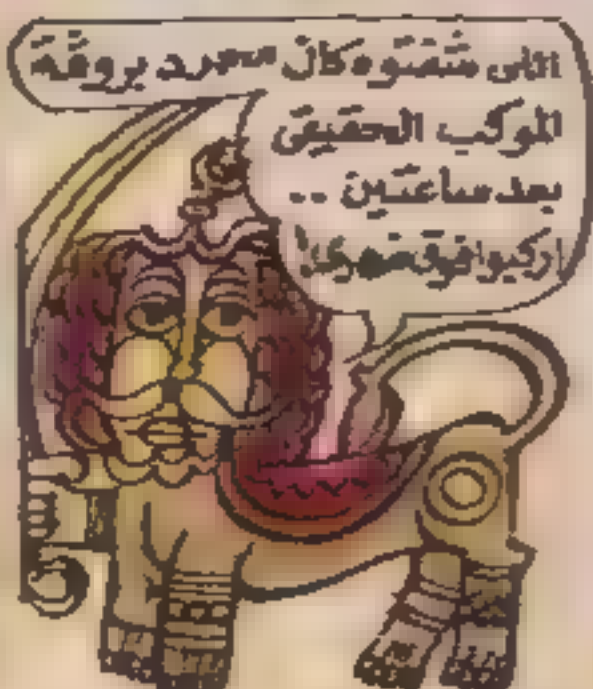 اللى شفتوه كان مجرد بروفة
الموكب الحقيقى
بعد ساعتين ..
اركبوا فوق